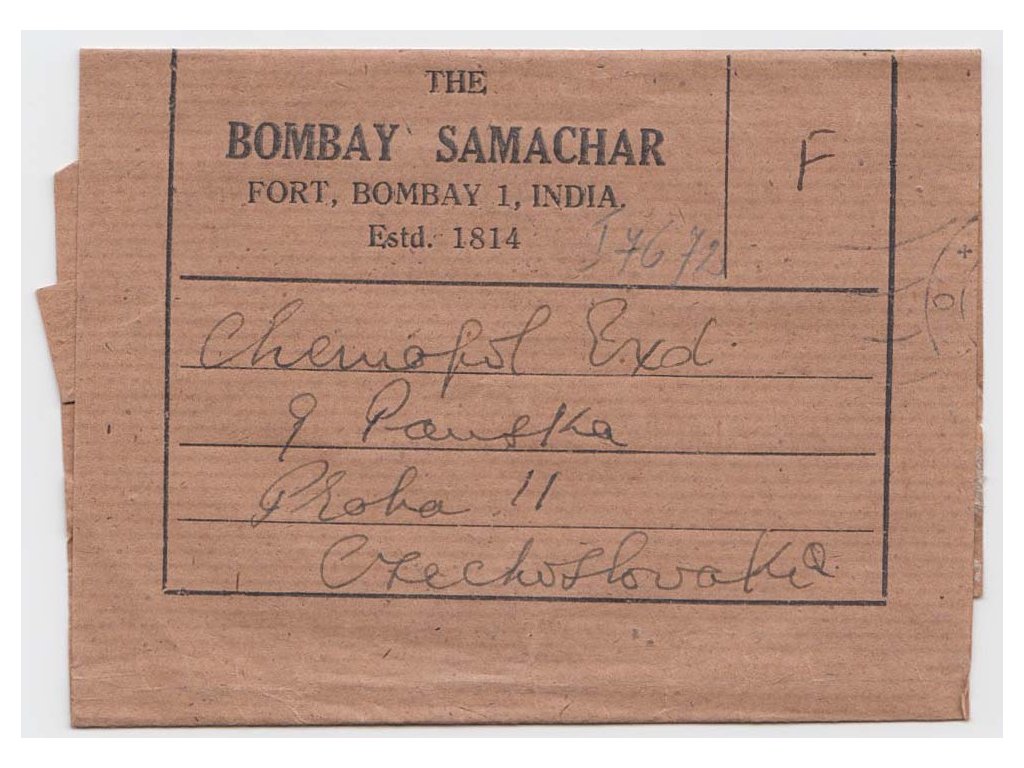 THE
BOMBAY SAMACHAR
F
FORT, BOMBAY 1, INDIA.
Estd. 1814
17672
Chemopol Exd.
9 Panska
Praha 11
Czechoslovakia